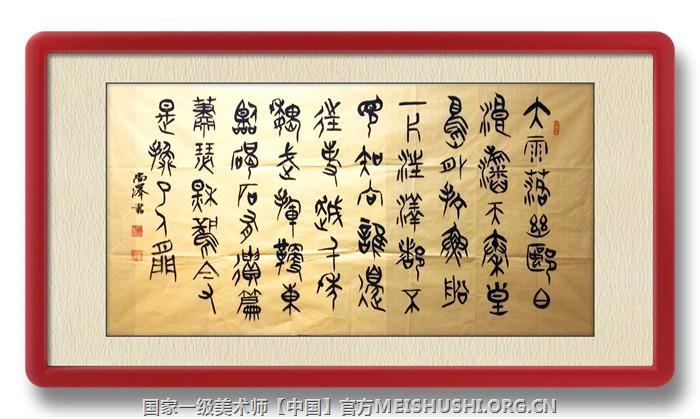 大雨落幽燕白
浪滔天秦皇
島外打魚船
一片汪洋都不
見知向誰邊
往事越千年
魏武揮鞭東
臨碣石有遺篇
蕭瑟秋風今又
是換了人間
国家一级美术师【中国】官方MEISHUSHI.ORG.CN